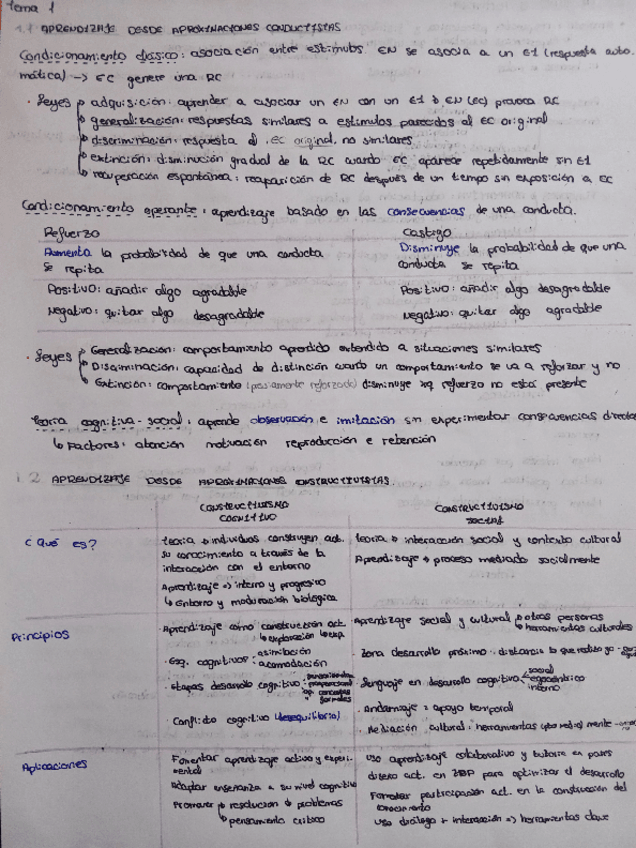 Tema 1
1.1 APRENDIZAJE DESDE APROXIMACIONES CONDUCTISTAS
Condicionamiento clásico: asociación entre estímulos EN se asocia a un EI (respuesta auto.
mática) -> EC genere una RC
· Leyes adquisición: aprender a asociar un EN con un EI EN (EC) provoca RC
generalización: respuestas similares a estímulos parecidos al EC original
discriminación: respuesta al EC original, no similares
extinción: disminución gradual de la RC cuando EC aparece repetidamente sin EI
recuperación espontánea: reaparición de RC después de un tiempo sin exposición a EC
Condicionamiento operante: aprendizaje basado en las consecuencias de una conducta.
Refuerzo Castigo
Aumenta la probabilidad de que una conducta Disminuye la probabilidad de que una
se repita conducta se repita
Positivo: añadir algo agradable Positivo: añadir algo desagradable
Negativo: quitar algo desagradable Negativo: quitar algo agradable
· Leyes Generalización: comportamiento aprendido extendido a situaciones similares
Discriminación: capacidad de distinción cuando un comportamiento se va a reforzar y no
Extinción: comportamiento (previamente reforzado) disminuye xq refuerzo no está presente
Teoría cognitiva-social: aprende observación e imitación sin experimentar consecuencias
Factores: atención motivación reproducción e retención
1.2 APRENDIZAJE DESDE APROXIMACIONES CONSTRUCTIVISTAS.
CONSTRUCTIVISMO CONSTRUCTIVISMO
COGNITIVO SOCIAL
¿Qué es? teoría individuos construyen act. teoría interacción social y contexto cultural
su conocimiento a través de la Aprendizaje proceso mediado socialmente
interacción con el entorno
Aprendizaje => interno y progresivo
Entorno y maduración biológica
Principios · Aprendizaje como construcción act. · Aprendizaje social y cultural otras personas
exploración exp herramientas culturales
· Esq. cognitivos: asimilación · Zona desarrollo próximo: distancia lo que realizo yo
acomodación
· Etapas desarrollo cognitivo · Lenguaje en desarrollo cognitivo social
egocéntrico
interno
· Andamiaje: apoyo temporal
· Conflicto cognitivo (desequilibrio) · Mediación cultural: herramientas mente
Aplicaciones Fomentar aprendizaje activo y experi- Uso aprendizaje colaborativo y tutoría en pares
mental diseño act. en ZDP para optimizar el desarrollo
Adaptar enseñanza a su nivel cognitivo Fomentar participación act. en la construcción del
conocimiento
Promover resolución problemas Uso diálogo + interacción => herramientas clave
pensamiento crítico